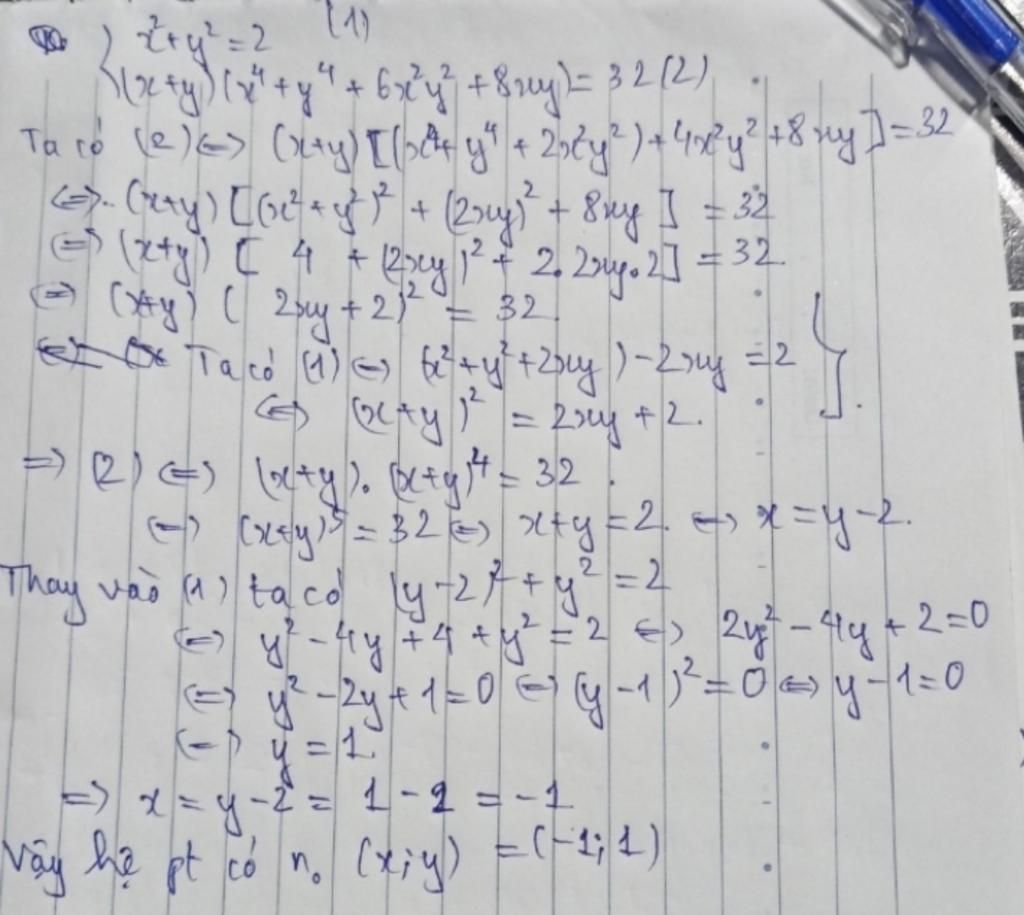 { x² + y² = 2 (1)
(x+y)(x⁴ + y⁴ + 6x²y² + 8xy) = 32 (2)
Ta có (2) <=> (x+y)[(x⁴ + y⁴ + 2x²y²) + 4x²y² + 8xy] = 32
<=> (x+y)[(x² + y²)² + (2xy)² + 8xy] = 32
<=> (x+y)[4 + (2xy)² + 2.2xy.2] = 32
<=> (x+y)(2xy + 2)² = 32
Ta có (1) <=> (x² + y² + 2xy) - 2xy = 2 }
<=> (x+y)² = 2xy + 2.
=> (2) <=> (x+y).(x+y)⁴ = 32.
<=> (x+y)⁵ = 32 <=> x+y = 2. <=> x = y - 2.
Thay vào (1) ta có (y-2)² + y² = 2
<=> y² - 4y + 4 + y² = 2 <=> 2y² - 4y + 2 = 0
<=> y² - 2y + 1 = 0 <=> (y-1)² = 0 <=> y - 1 = 0
<=> y = 1.
=> x = y - 2 = 1 - 2 = -1
Vậy hệ pt có n₀ (x;y) = (-1; 1)